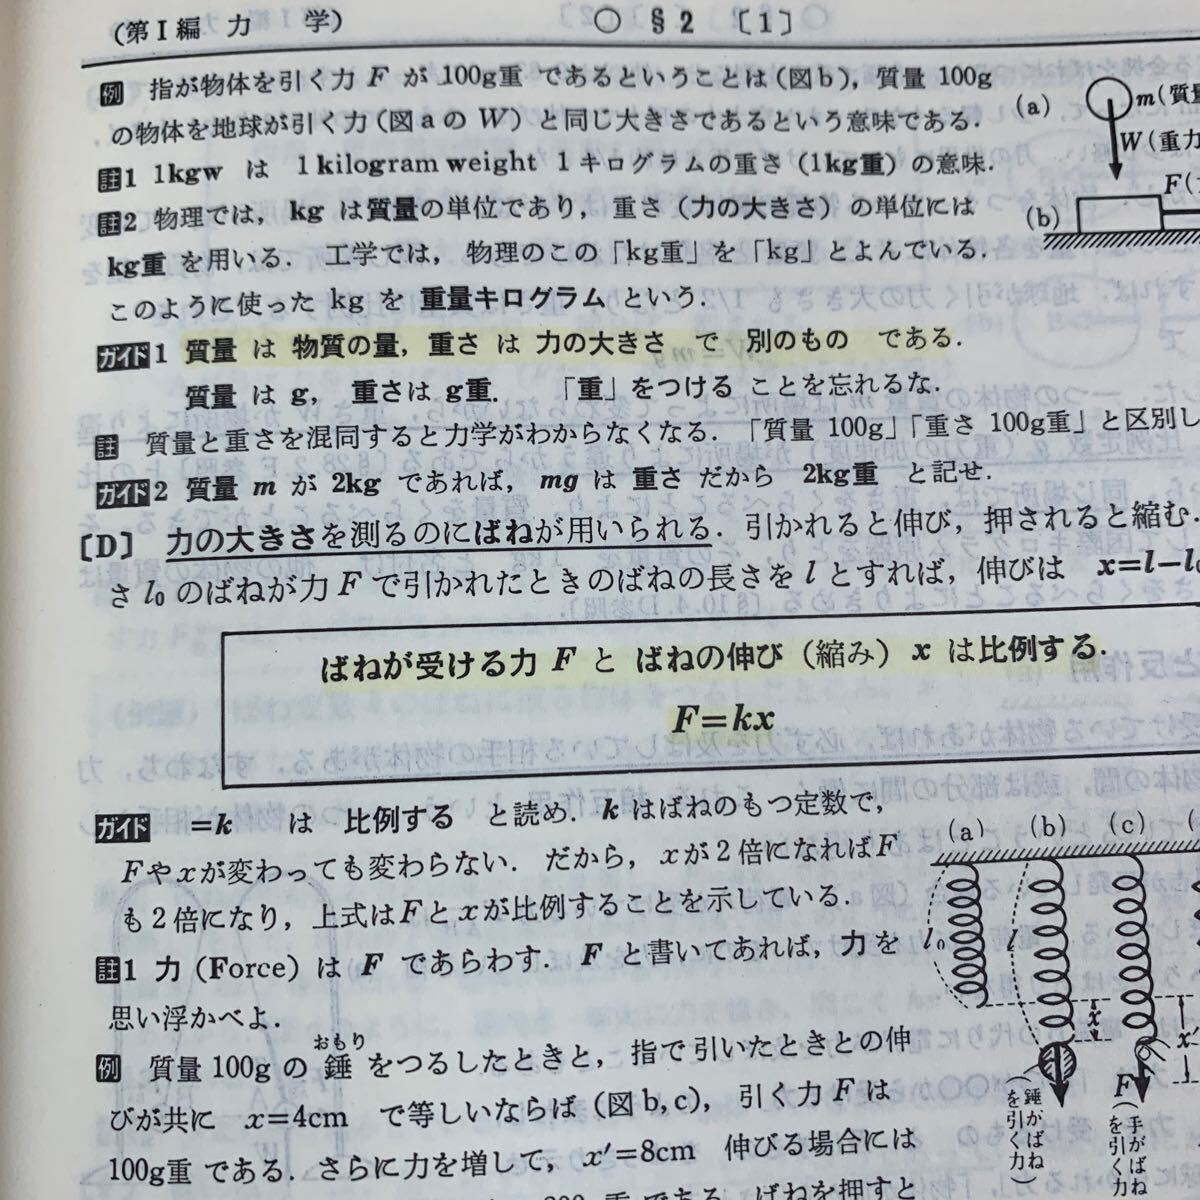 (第Ⅰ編 力 学) ○ §2 〔1〕
例 指が物体を引く力 F が 100g重 であるということは (図b), 質量 100g
の物体を地球が引く力 (図aの W) と同じ大きさであるという意味である.
註1 1kgw は 1 kilogram weight 1 キログラムの重さ (1kg重) の意味.
註2 物理では, kg は質量の単位であり, 重さ (力の大きさ) の単位には
kg重 を用いる. 工学では, 物理のこの「kg重」を「kg」とよんでいる.
このように使った kg を 重量キログラム という.
ガイド1 質量 は 物質の量, 重さ は 力の大きさ で 別のもの である.
質量 は g, 重さは g重. 「重」をつける ことを忘れるな.
註 質量と重さを混同すると力学がわからなくなる. 「質量 100g」「重さ 100g重」と区別し
ガイド2 質量 m が 2kg であれば, mg は 重さ だから 2kg重 と記せ.
〔D〕 力の大きさを測るのにばねが用いられる. 引かれると伸び, 押されると縮む.
さ l₀ のばねが力 F で引かれたときのばねの長さを l とすれば, 伸びは x=l−l₀
ばねが受ける力 F と ばねの伸び (縮み) x は比例する.
F=kx
ガイド =k は 比例する と読め. k はばねのもつ定数で,
Fやxが変わっても変わらない. だから, xが2倍になればF
も2倍になり, 上式はFとxが比例することを示している.
註1 力 (Force) は F であらわす. F と書いてあれば, 力を
思い浮かべよ.
例 質量 100g の 錘 をつるしたときと, 指で引いたときとの伸
おもり
びが共に x=4cm で等しいならば (図 b, c), 引く力 F は
100g重 である. さらに力を増して, x′=8cm 伸びる場合には
重 である. ばねを押すと
(a) m(質量
W(重力
(b) F(
(a) (b) (c)
l₀ l x x
F
(錘がばねを引く力)
(手がばねを引く力